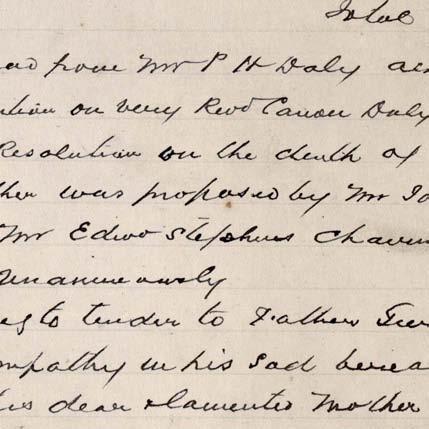 Total
from Mr P H Daly
on very Revd Canon Daly
Resolution on the death of
was proposed by Mr
Mr Edwd Stephens
unanimously
to tender to Father
in his sad
dear & lamented Mother